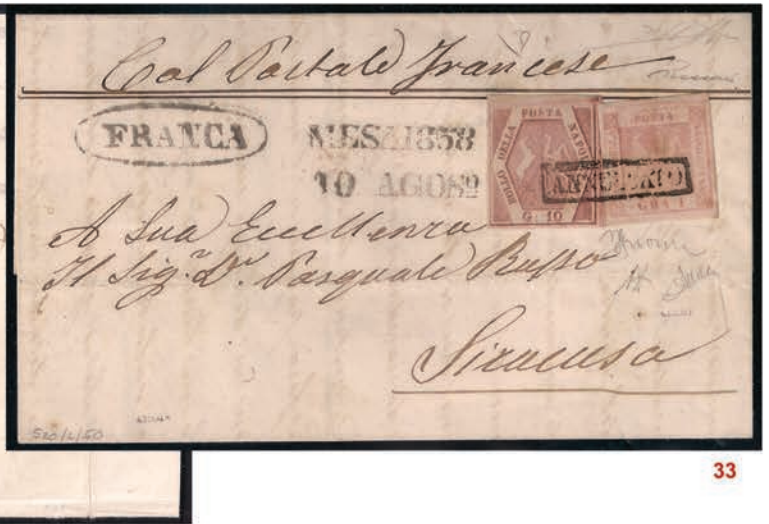 Col Postale Francese
FRANCA
MESA1858
10 AGOSº
BOLLO DELLA POSTA NAPO
G. 10
POSTA
GRA 1
ANNULLATO
A Sua Eccellenza
Il Sig.r Dr. Pasquale Russo
Siracusa
520/2/50
33